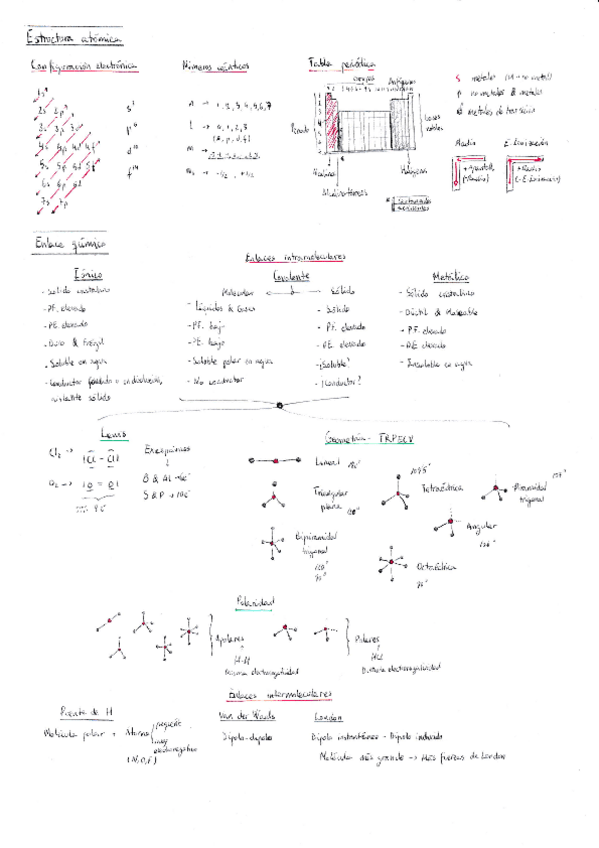 Estructura atómica
Configuración electrónica
Números cuánticos
Tabla periódica
1s²
2s 2p
3s 3p 3d
4s 4p 4d 4f
5s 5p 5d 5f
6s 6p 6d
7s 7p
s²
p⁶
d¹⁰
f¹⁴
n → 1, 2, 3, 4, 5, 6, 7
l → 0, 1, 2, 3
(s, p, d, f)
m →
ms → -½, +½
Periodo
Anfígenos
Gases nobles
Alcalinos
Alcalinotérreos
Halógenos
s metales
p no metales & metales
d metales de transición
Radio
E. Ionización
Enlace químico
Enlaces intramoleculares
Iónico
- Sólido cristalino
- P.F. elevado
- P.E. elevado
- Duro & Frágil
- Soluble en agua
- Conductor fundido o en disolución,
aislante sólido
Covalente
Molecular
Sólido
- Líquidos & Gases
- P.F. bajo
- P.E. bajo
- Soluble polar en agua
- No conductor
- Sólido
- P.F. elevado
- P.E. elevado
- ¿Soluble?
- ¿Conductor?
Metálico
- Sólido cristalino
- Dúctil & Maleable
- P.F. elevado
- P.E. elevado
- Insoluble en agua
Lewis
Cl₂ → |Cl - Cl|
O₂ → |O = O|
Excepciones
B & Al → 6e⁻
S & P → 10e⁻
Geometría - TRPECV
Lineal 180°
Triangular plana 120°
Bipiramidal trigonal
120°
90°
109'5°
Tetraédrica
Piramidal trigonal
107°
Angular
Octaédrica
90°
Polaridad
Apolares
H-H
Polares
HCl
Distinta electronegatividad
Enlaces intermoleculares
Puente de H
Molécula polar + Átomo
pequeño
muy electronegativo
(N, O, F)
Van der Waals
Dipolo-dipolo
London
Dipolo instantáneo - Dipolo inducido
Molécula más grande → Más fuerzas de London